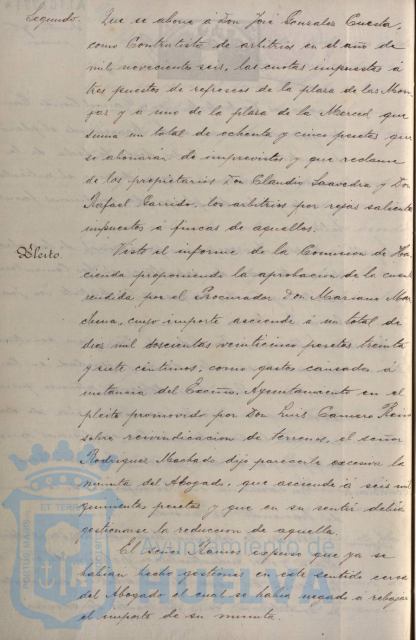 Segundo. Que se abone á Don José Gonzalez Cuesta,
como Contratista de arbitrios en el año de
mil novecientos seis, las cuotas impuestas á
tres puestos de refrescos de la plaza de las Mon-
jas y á uno de la plaza de la Merced que
suma un total de ochenta y cinco pesetas que
se abonarán de imprevistos y que reclame
de los propietarios Don Claudio Saavedra y Don
Rafael Garrido, los arbitrios por rejas salientes
impuestos á fincas de aquellos.
Pleito. Visto el informe de la Comision de Ha-
cienda proponiendo la aprobacion de la cuenta
rendida por el Procurador Don Mariano Mar-
chena, cuyo importe asciende á un total de
diez mil doscientas veinticinco pesetas treinta
y siete céntimos, como gastos causados á
instancia del Excmo. Ayuntamiento en el
pleito promovido por Don Luis Camero
sobre reivindicacion de terrenos, el señor
Rodriguez Machado dijo parecerle excesiva la
minuta del Abogado, que asciende á seis mil
quinientas pesetas y que en su sentir debía
gestionarse la reduccion de aquella.
El señor Ramos expuso que ya se
habian hecho gestiones en este sentido cerca
del Abogado el cual se habia negado á rebajar
el importe de su minuta.
Ayuntamiento de
HUELVA